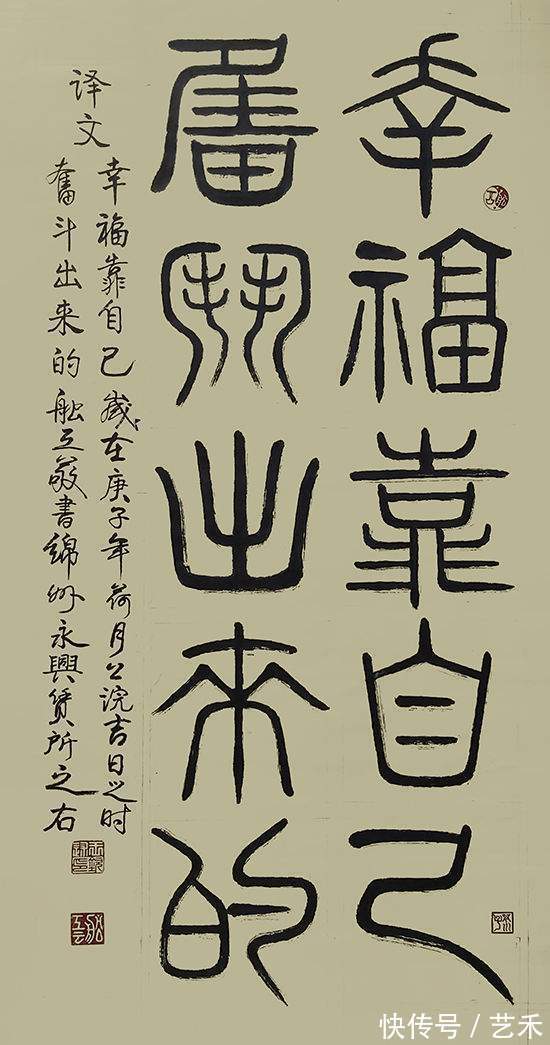 幸福靠自己
奮鬥出来的
译文
幸福靠自己 歲在庚子年荷月浣吉日之时
奮斗出来的 敬書綿州永興賃所之右
快传号/艺禾